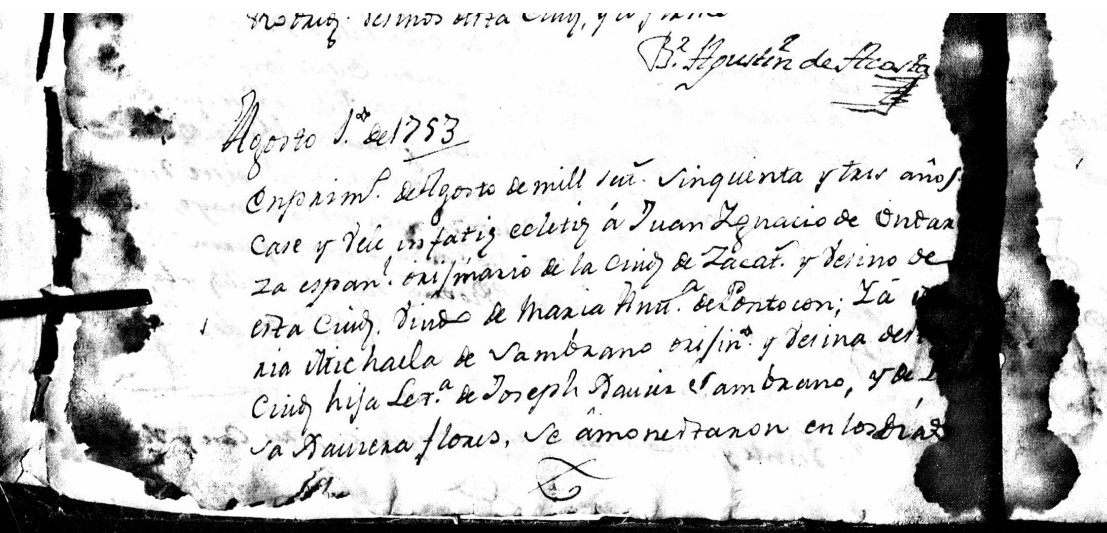 vesinos desta Ciud, y lo firme
B.r Agustin de Acosta
Agosto 1.º de 1753
En prim.º de Agosto de mill set.s Sinquenta y tres años
Case y Vele infatiẽ ecletiẽ á Juan Ygnacio de Ondar
za españ.l orijinario de la Ciud de Zacat.s y Vesino de
esta Ciud. Viudo de Maria Ant.a de Pontocon; Ya
ria Michaela de Sambrano orijin.a y Vesina des
Ciud hija Lex.a de Joseph Xavier Sambrano, y de
sa Xaviera flores, Se âmonestaron en los Dias